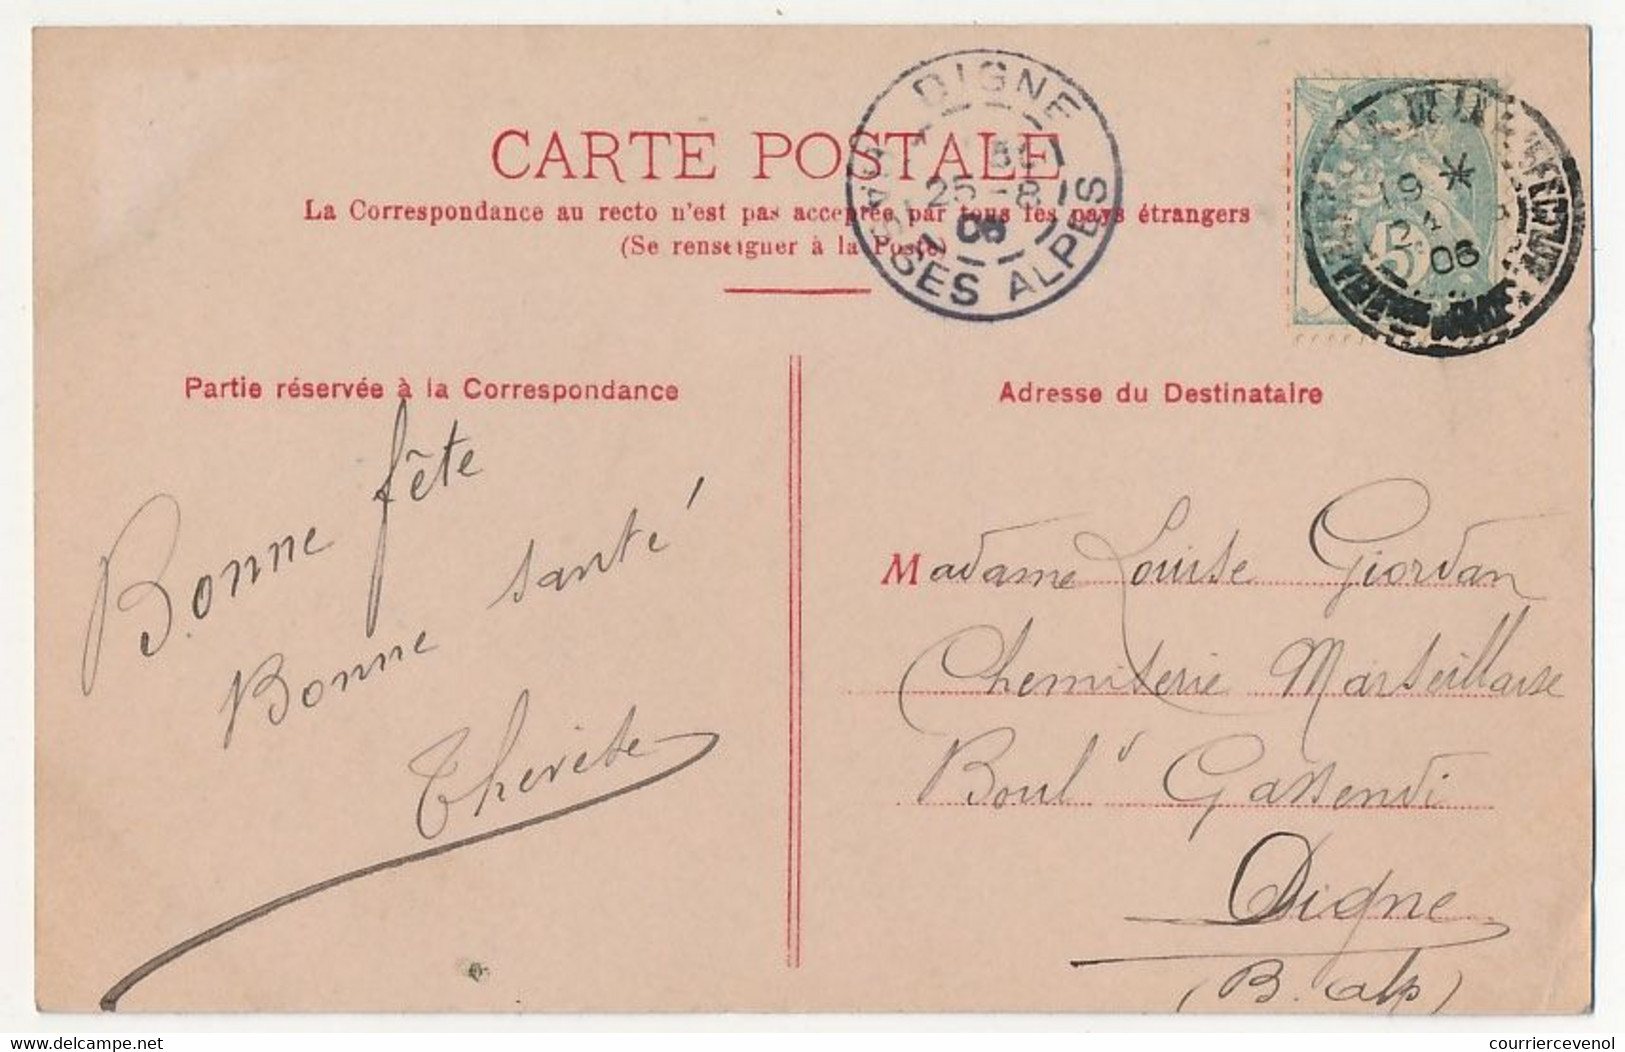 CARTE POSTALE
La Correspondance au recto n'est pas acceptée par tous les pays étrangers
(Se renseigner à la Poste)
DIGNE
25 - 8
06
BASSES ALPES
19 *
06
5c
Partie réservée à la Correspondance
Adresse du Destinataire
Bonne fête
Bonne santé
Thérèse
Madame Louise Giordan
Chemiserie Marseillaise
Boul d Gassendi
Digne
(B. Alp)
courriercevenol